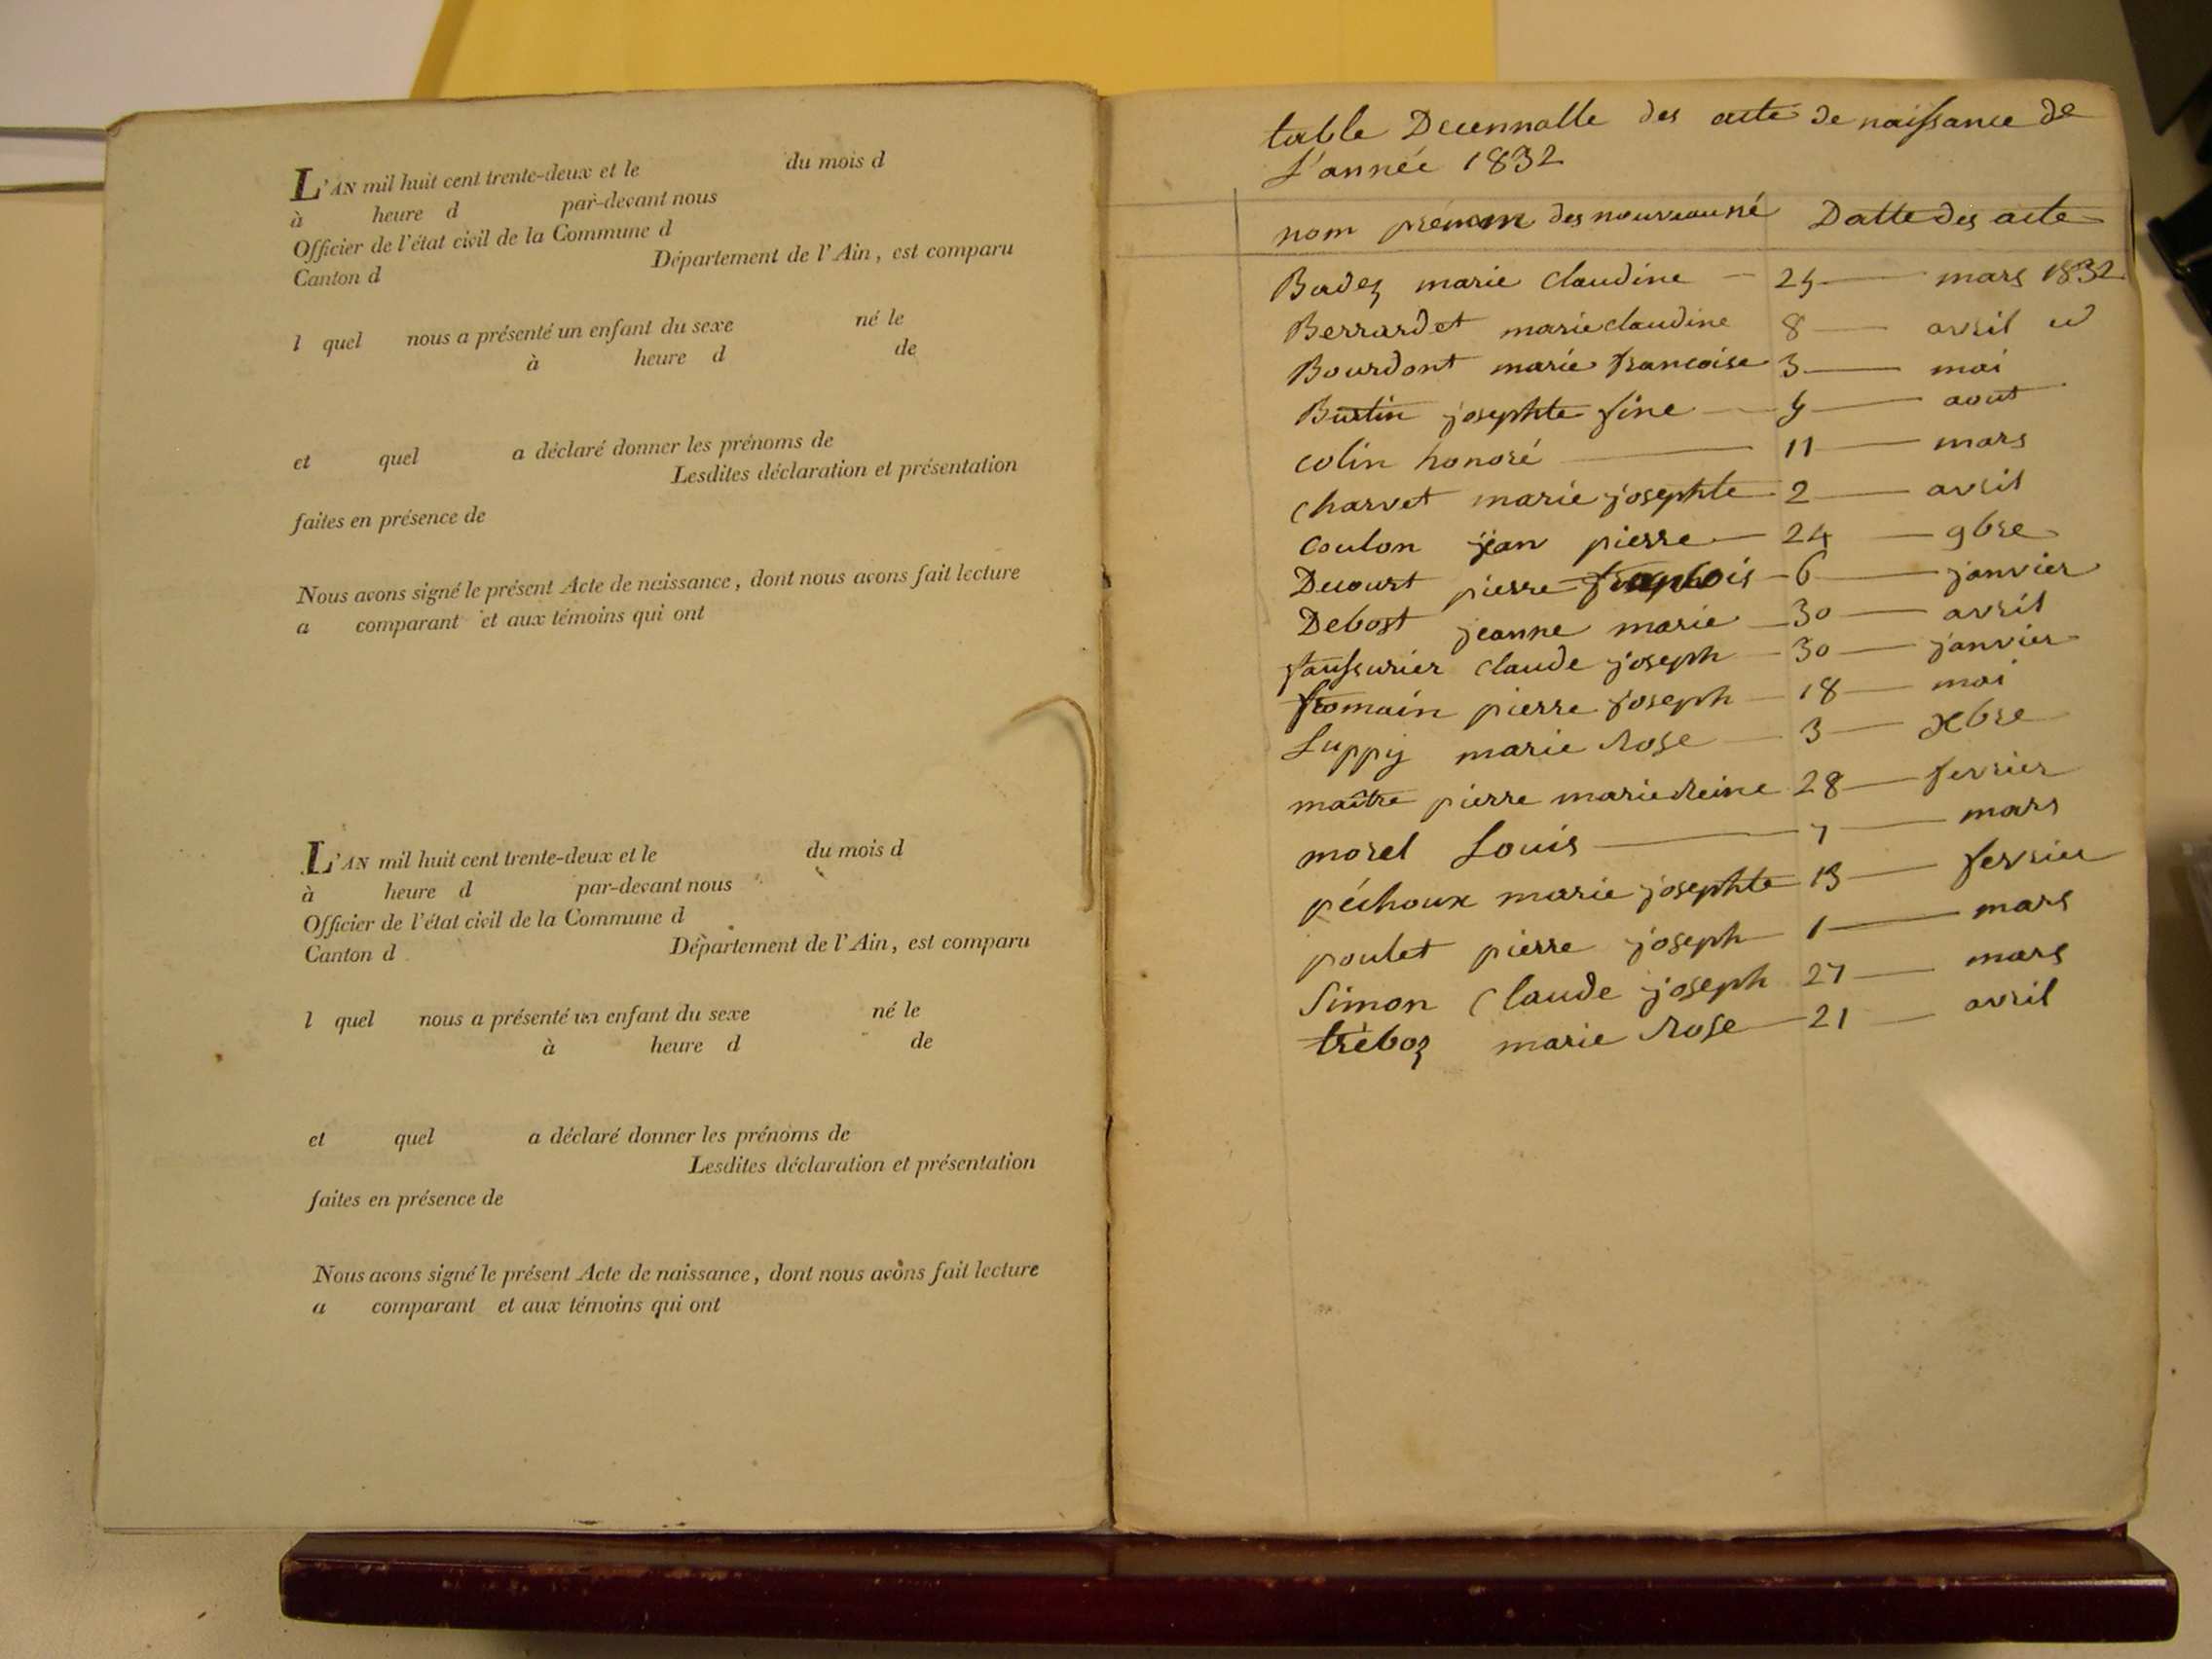 L'AN mil huit cent trente-deux et le du mois d
à heure d par-devant nous
Officier de l'état civil de la Commune d
Canton d Département de l'Ain, est comparu
l quel nous a présenté un enfant du sexe né le
à heure d de
et quel a déclaré donner les prénoms de
Lesdites déclaration et présentation
faites en présence de
Nous avons signé le présent Acte de naissance, dont nous avons fait lecture
a comparant et aux témoins qui ont
L'AN mil huit cent trente-deux et le du mois d
à heure d par-devant nous
Officier de l'état civil de la Commune d
Canton d Département de l'Ain, est comparu
l quel nous a présenté un enfant du sexe né le
à heure d de
et quel a déclaré donner les prénoms de
Lesdites déclaration et présentation
faites en présence de
Nous avons signé le présent Acte de naissance, dont nous avons fait lecture
a comparant et aux témoins qui ont
table Decennalle des acte de naissance de
L'année 1832
nom prénom des nouveau né Datte des acte
Badez marie Claudine mars 1832
Berrardet marie claudine 8 avril id
Bourdont marie francoise 3 mai
Bustin josephte fine aout
colin honoré 11 mars
Charvet marie josephte 2 avril
Coulon jean pierre 24 9bre
Decourt pierre 6 janvier
Debost jeanne marie 30 avril
faussurier Claude joseph 30 janvier
fromain pierre joseph 18 mai
Luppy marie Rose 3 xbre
maître pierre marie Reine 28 fevrier
morel Louis 7 mars
péchoux marie josephte 13 fevrier
poulet pierre joseph 1 mars
Simon Claude joseph 27 mars
tréboz marie Rose 21 avril